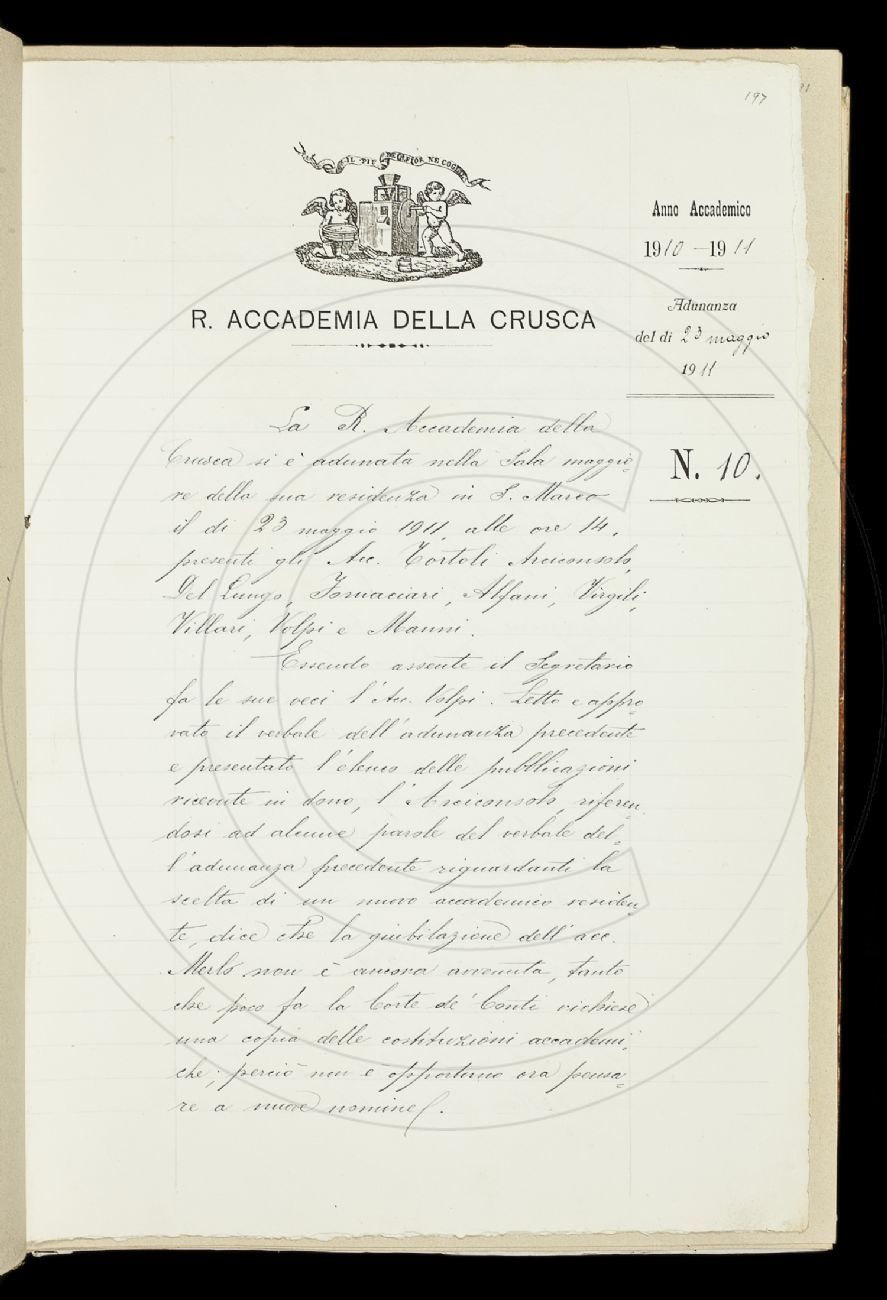 197
IL PIÙ BEL FIOR NE COGLIE
R. ACCADEMIA DELLA CRUSCA
Anno Accademico
1910-1911
Adunanza
del dì 23 maggio
1911
N. 10.
La R. Accademia della
Crusca si è adunata nella Sala maggio-
re della sua residenza in S. Marco
il dì 23 maggio 1911, alle ore 14,
presenti gli Acc. Tortoli Arciconsolo,
Del Lungo, Fornaciari, Alfani, Virgili,
Villari, Volpi e Manni.
Essendo assente il Segretario
fa le sue veci l'Acc. Volpi. Letto e appro-
vato il verbale dell'adunanza precedente
e presentato l'elenco delle pubblicazioni
ricevute in dono, l'Arciconsolo, riferen-
dosi ad alcune parole del verbale del-
l'adunanza precedente riguardanti la
scelta di un nuovo accademico residen-
te, dice che la giubilazione dell'acc.
Merlo non è ancora avvenuta, tanto
che poco fa la Corte de' Conti richiese
una copia delle costituzioni accademi-
che; perciò non è opportuno ora pensa-
re a nuove nomine.